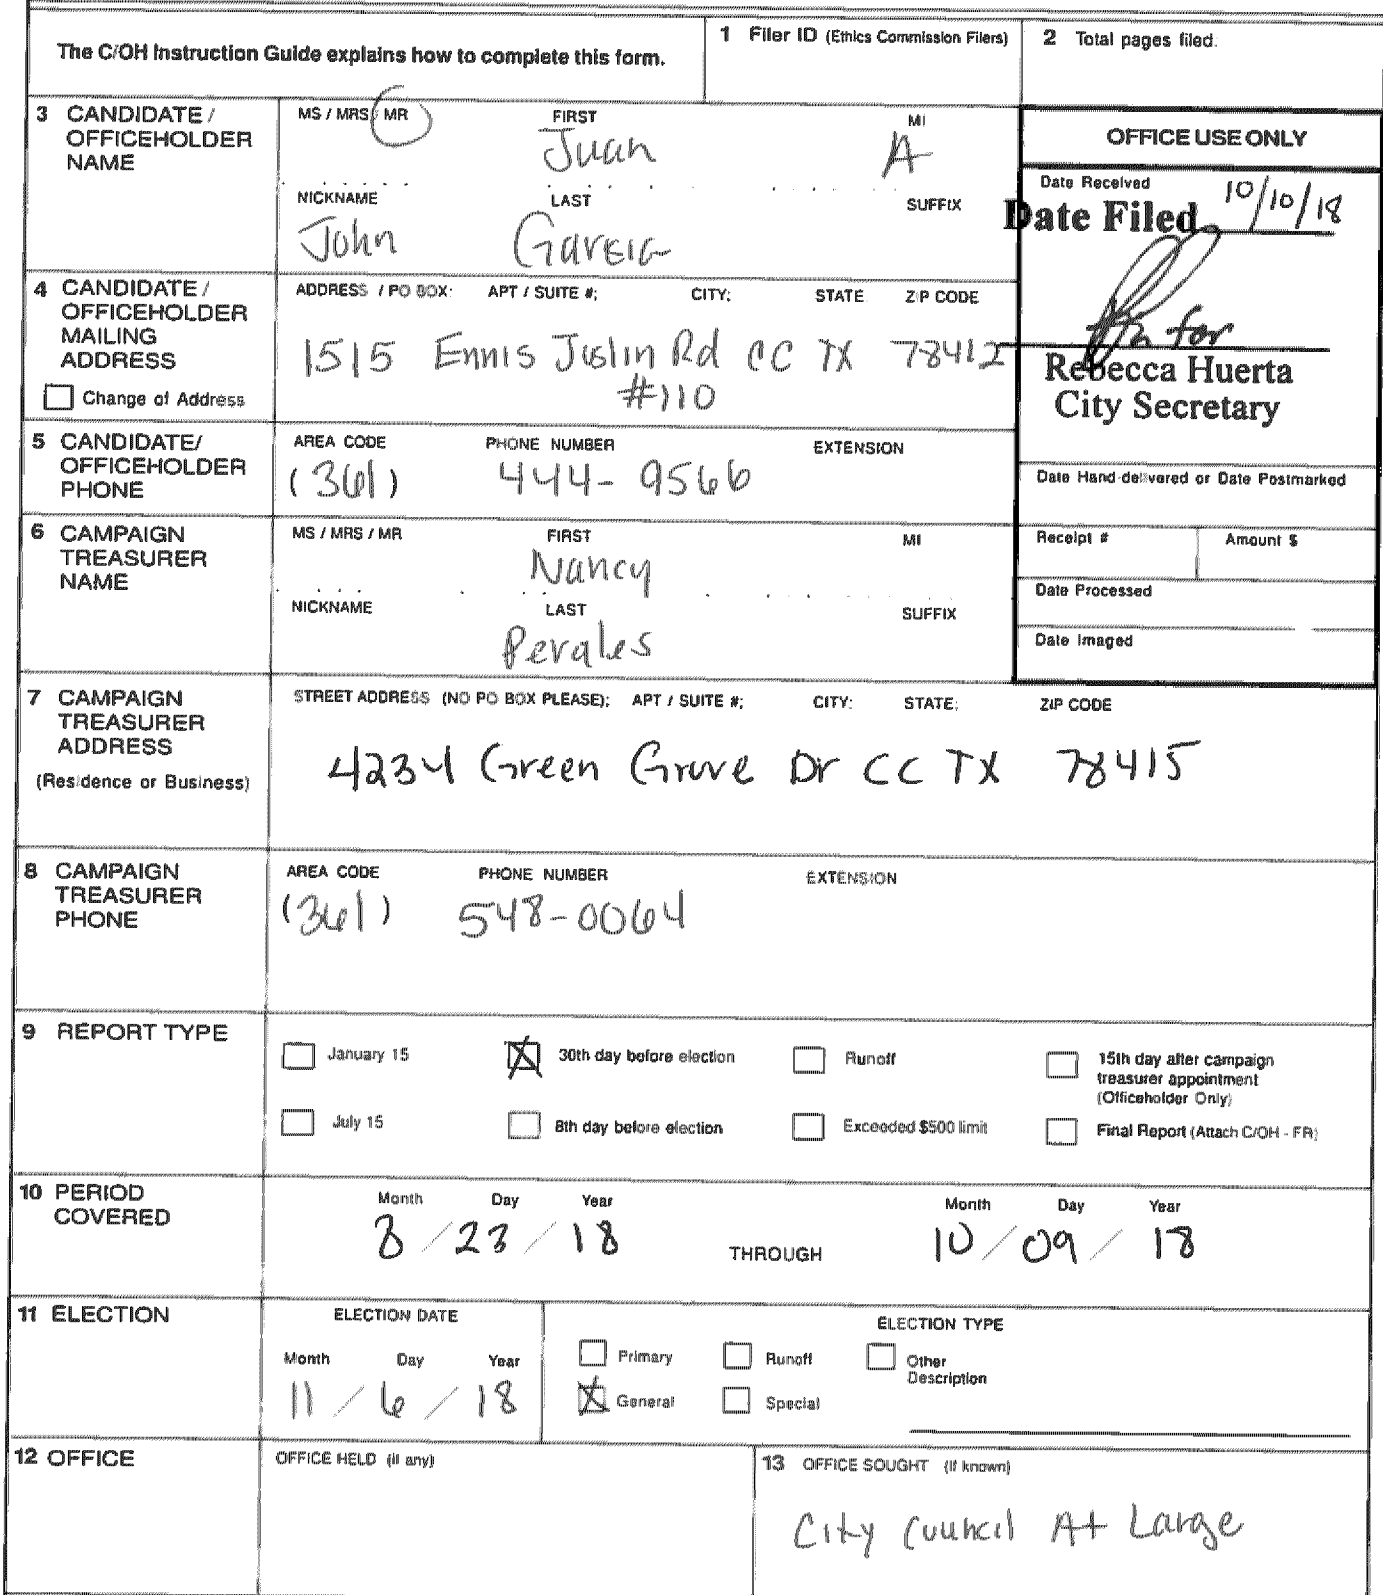 The C/OH Instruction Guide explains how to complete this form.
1 Filer ID (Ethics Commission Filers)
2 Total pages filed:
3 CANDIDATE / OFFICEHOLDER NAME
MS / MRS / MR FIRST MI
Juan A
NICKNAME LAST SUFFIX
John Garcia
OFFICE USE ONLY
Date Received
Date Filed 10/10/18
for
Rebecca Huerta
City Secretary
Date Hand-delivered or Date Postmarked
Receipt # Amount $
Date Processed
Date Imaged
4 CANDIDATE / OFFICEHOLDER MAILING ADDRESS
Change of Address
ADDRESS / PO BOX; APT / SUITE #; CITY; STATE ZIP CODE
1515 Ennis Joslin Rd CC TX 78412
#110
5 CANDIDATE/ OFFICEHOLDER PHONE
AREA CODE PHONE NUMBER EXTENSION
(361) 444-9566
6 CAMPAIGN TREASURER NAME
MS / MRS / MR FIRST MI
Nancy
NICKNAME LAST SUFFIX
Perales
7 CAMPAIGN TREASURER ADDRESS
(Residence or Business)
STREET ADDRESS (NO PO BOX PLEASE); APT / SUITE #; CITY; STATE; ZIP CODE
4234 Green Grove Dr CC TX 78415
8 CAMPAIGN TREASURER PHONE
AREA CODE PHONE NUMBER EXTENSION
(361) 548-0064
9 REPORT TYPE
January 15
30th day before election
Runoff
15th day after campaign treasurer appointment (Officeholder Only)
July 15
8th day before election
Exceeded $500 limit
Final Report (Attach C/OH - FR)
10 PERIOD COVERED
Month Day Year
8 / 23 / 18
THROUGH
Month Day Year
10 / 09 / 18
11 ELECTION
ELECTION DATE
Month Day Year
11 / 6 / 18
ELECTION TYPE
Primary
Runoff
Other Description
General
Special
12 OFFICE
OFFICE HELD (if any)
13 OFFICE SOUGHT (if known)
City Council At Large